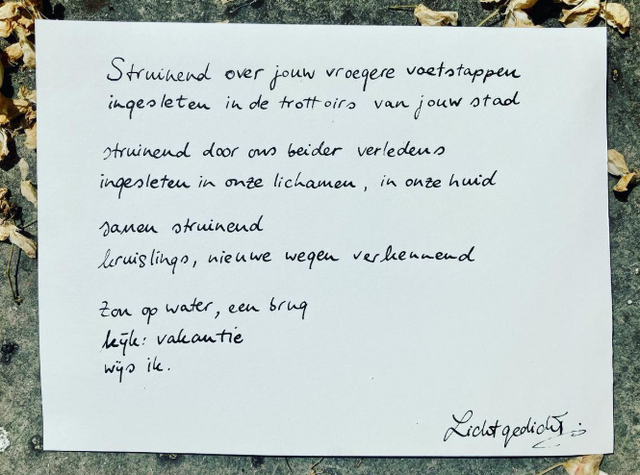 Struinend over jouw vroegere voetstappen
ingesleten in de trottoirs van jouw stad
struinend door ons beider verledens
ingesleten in onze lichamen, in onze huid
samen struinend
kruislings, nieuwe wegen verkennend
Zon op water, een brug
kijk: vakantie
wijs ik.
Lichtgedicht